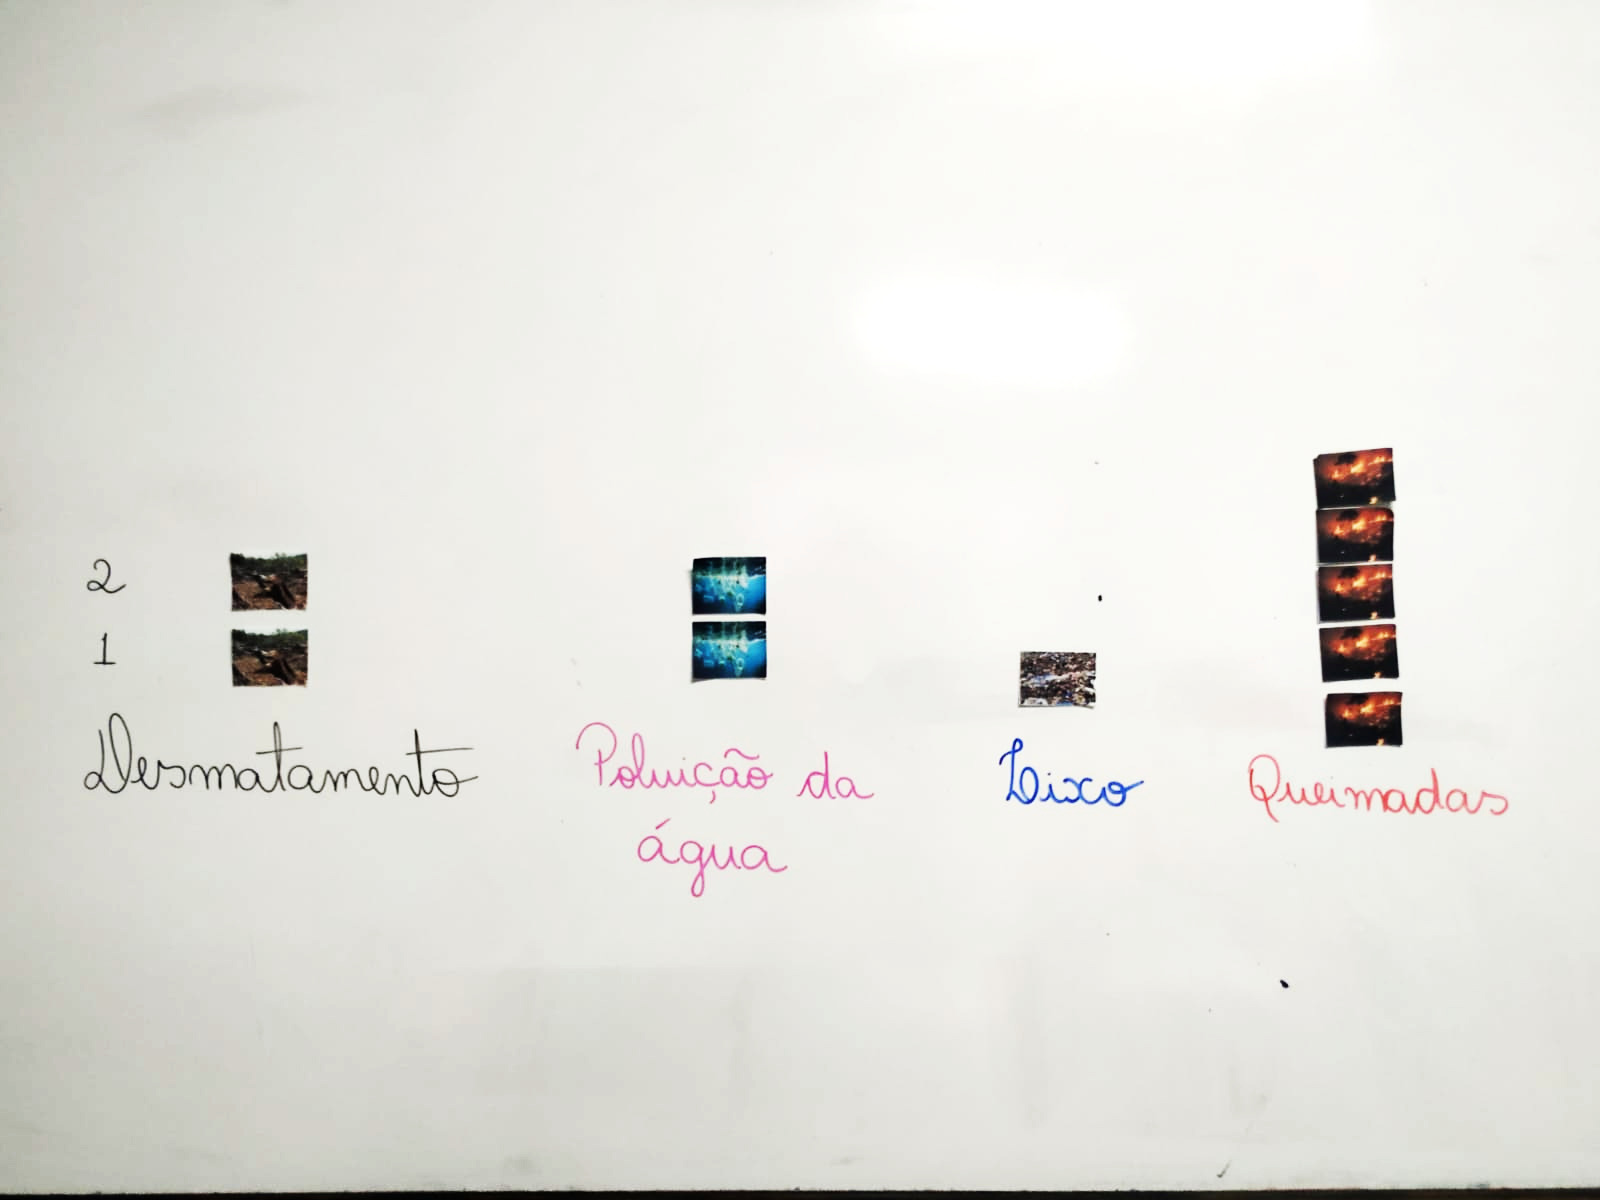 2
1
Desmatamento
Poluição da
água
Lixo
Queimadas